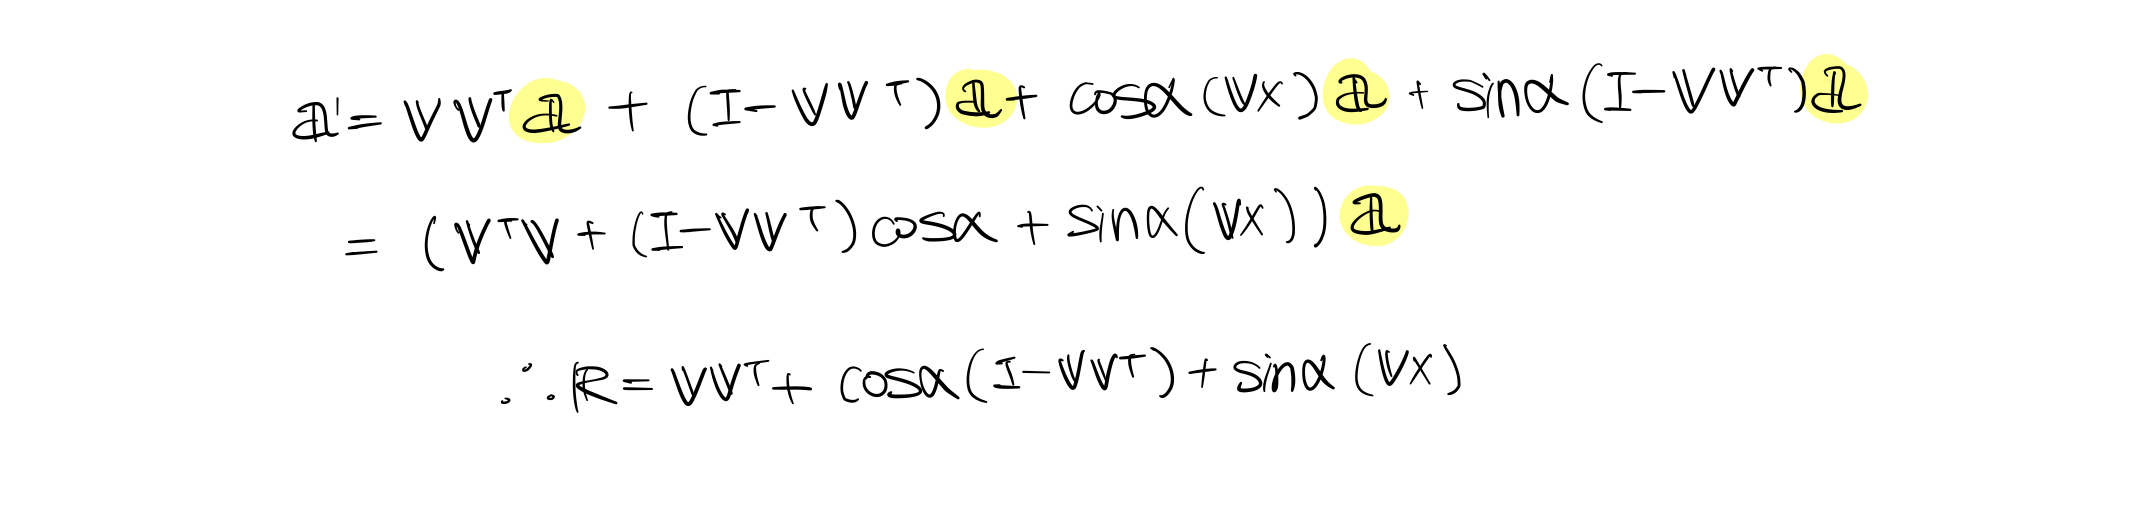 𝕒' = 𝕍𝕍ᵀ𝕒 + (I - 𝕍𝕍ᵀ)𝕒 + cosα(𝕍×)𝕒 + sinα(I - 𝕍𝕍ᵀ)𝕒
= (𝕍ᵀ𝕍 + (I - 𝕍𝕍ᵀ)cosα + sinα(𝕍×))𝕒
∴ R = 𝕍𝕍ᵀ + cosα(I - 𝕍𝕍ᵀ) + sinα(𝕍×)